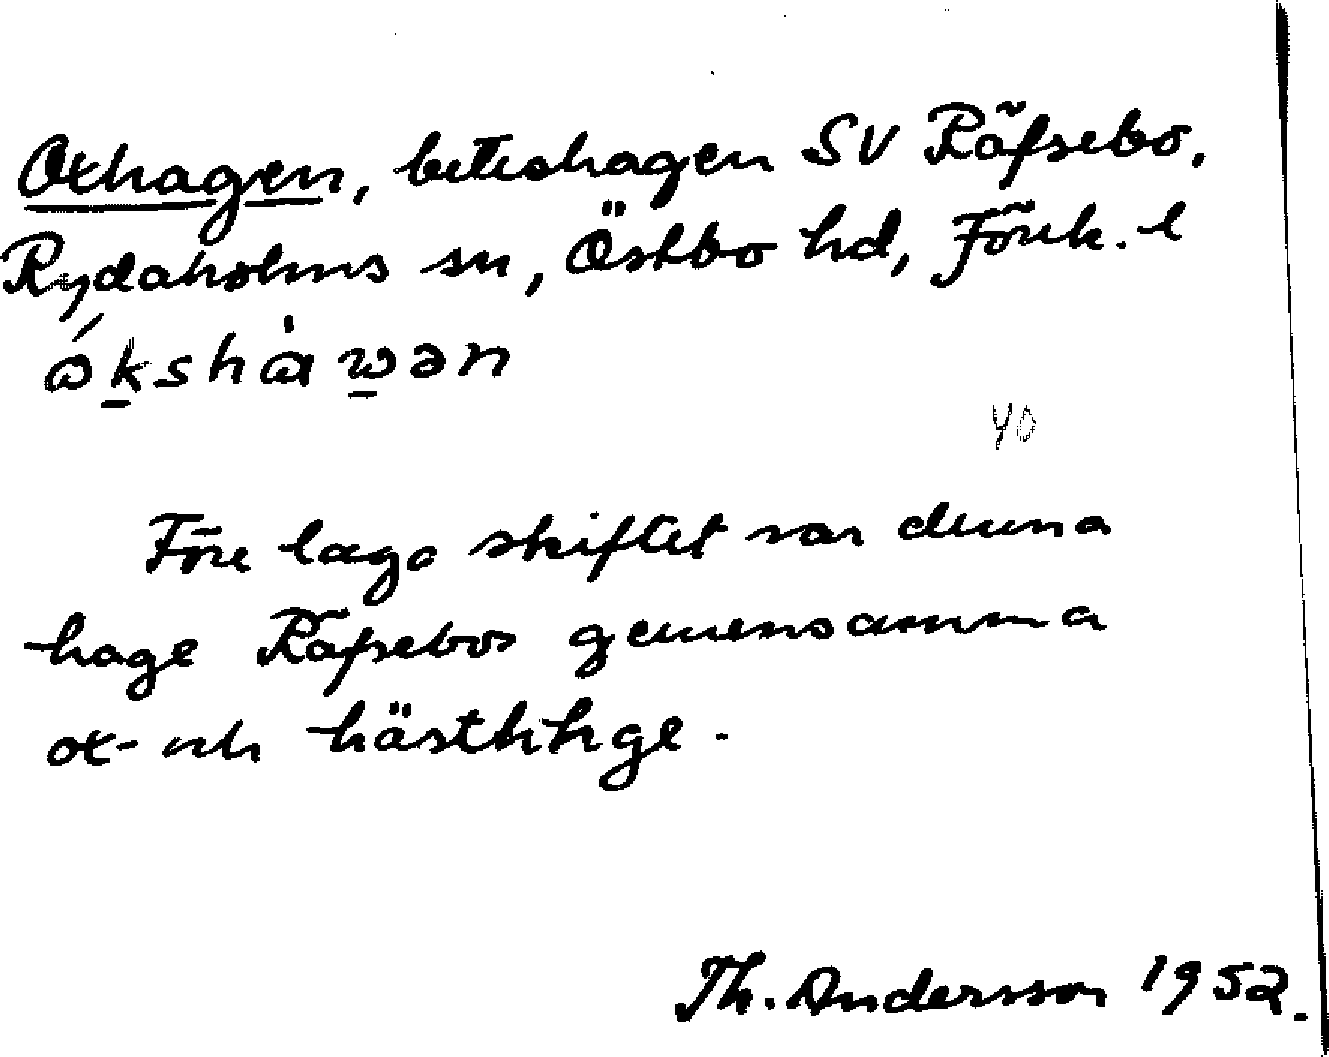 Oxhagen, beteshagen SV Räfsebo,
Rydaholms sn, Östbo hd, Jönk. l
ákshàwən
40
Före laga skiftet var denna
hage Räfsebos gemensamma
ox- och hästhhge.
Th. Andersson 1952.